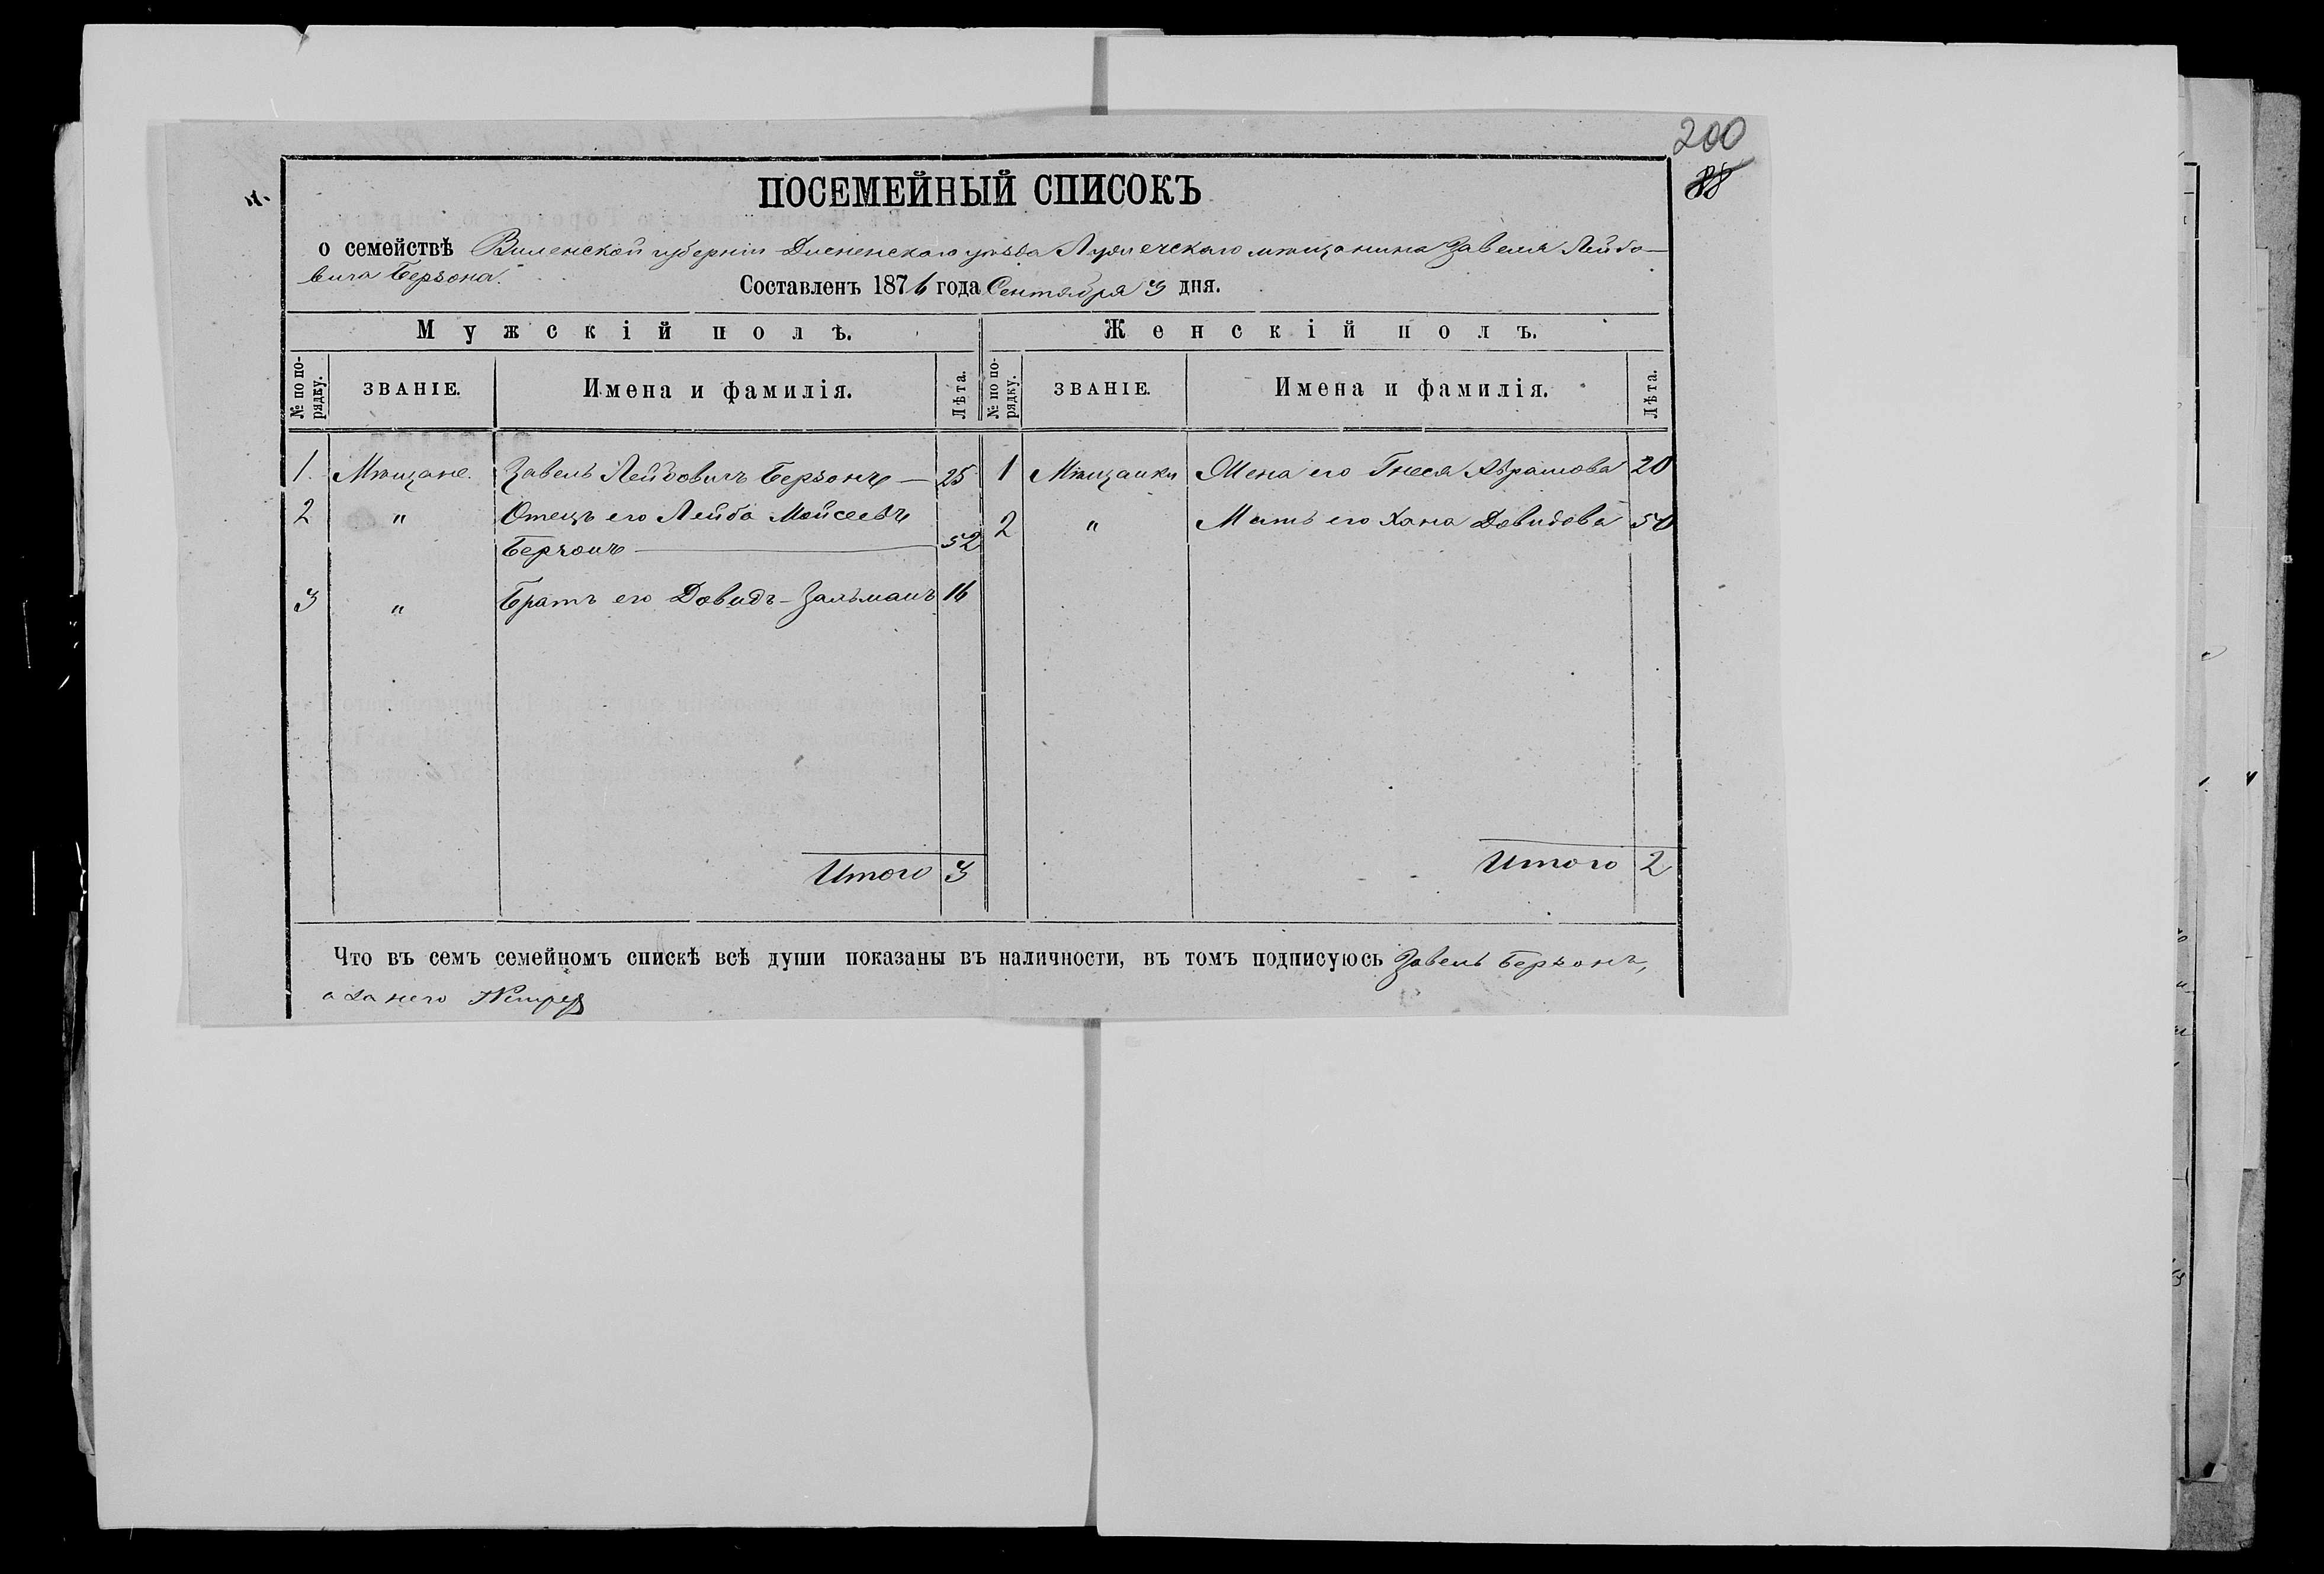 200
88
ПОСЕМЕЙНЫЙ СПИСОКЪ
о семействѣ Виленской губерніи Дисненскаго уѣзда Лужечскаго мѣщанина Завеля Лейбо-
вича Берзона.
Составленъ 1876 года Сентября 3 дня.
Мужскій полъ. Женскій полъ.
№ по по-рядку. ЗВАНІЕ. Имена и фамилія. Лѣта. № по по-рядку. ЗВАНІЕ. Имена и фамилія. Лѣта.
1. Мѣщане. Завель Лейбовичъ Берзонъ — 25 1 Мѣщанки Жена его Гнеся Абрамова 20
2 " Отецъ его Лейба Мойсеевъ 2 " Мать его Хана Давидова 50
Берзонъ — 52
3 " Братъ его Давидъ-Зальманъ 16
Итого 3 Итого 2
Что въ семъ семейномъ спискѣ всѣ души показаны въ наличности, въ томъ подписуюсь Завель Берзонъ,
а за него